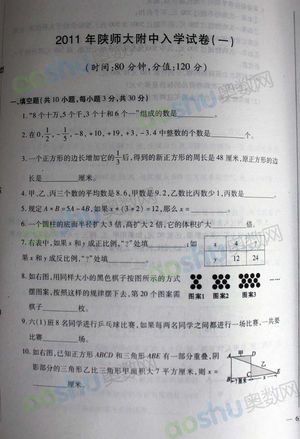 2011 年陕师大附中入学试卷(一)
(时间:80 分钟,分值:120 分)
一、填空题(共 10 小题,每小题 3 分,共 30 分)
1. “8 个十万,5 个千,3 个十和 6 个一”组成的数是
2. 在 0, 1/2, - 1/5, -8, +10, +19, +3, -3.4 中整数的个数是 个。
3. 一个正方形的边长增加它的 1/3 后,得到的新正方形的周长是 48 厘米,原正方形的边
长是 厘米。
4. 甲、乙、丙三个数的平均数是 8.6,甲数是 9.2,乙数比丙数少 1,丙数是 。
5. 规定 A*B=5A-4B,如果 x*(3*2)=12,那么 x= 。
6. 一个圆柱的底面半径扩大 3 倍,高扩大 2 倍,它的体积扩大 倍。
7. 右表中,如果 x 和 y 成正比例,“?”处填 ,如
果 x 和 y 成反比例,“?”处填 。
x 4
y 12 24
8. 如右图,用同样大小的黑色棋子按图所示的方式
摆图案,按照这样的规律摆下去,第 20 个图案需
棋子 枚。
图案1 图案2 图案3
9. 六(1)班 8 名同学进行乒乓球比赛,如果每两名同学之间都进行一场比赛,一共要
比赛 场。
10. 如右图,已知正方形 ABCD 和三角形 ABE 有一部分重叠,阴
影部分的三角形乙比三角形甲面积大 7 平方厘米,则 x=
厘米。
aoshu 奥数网